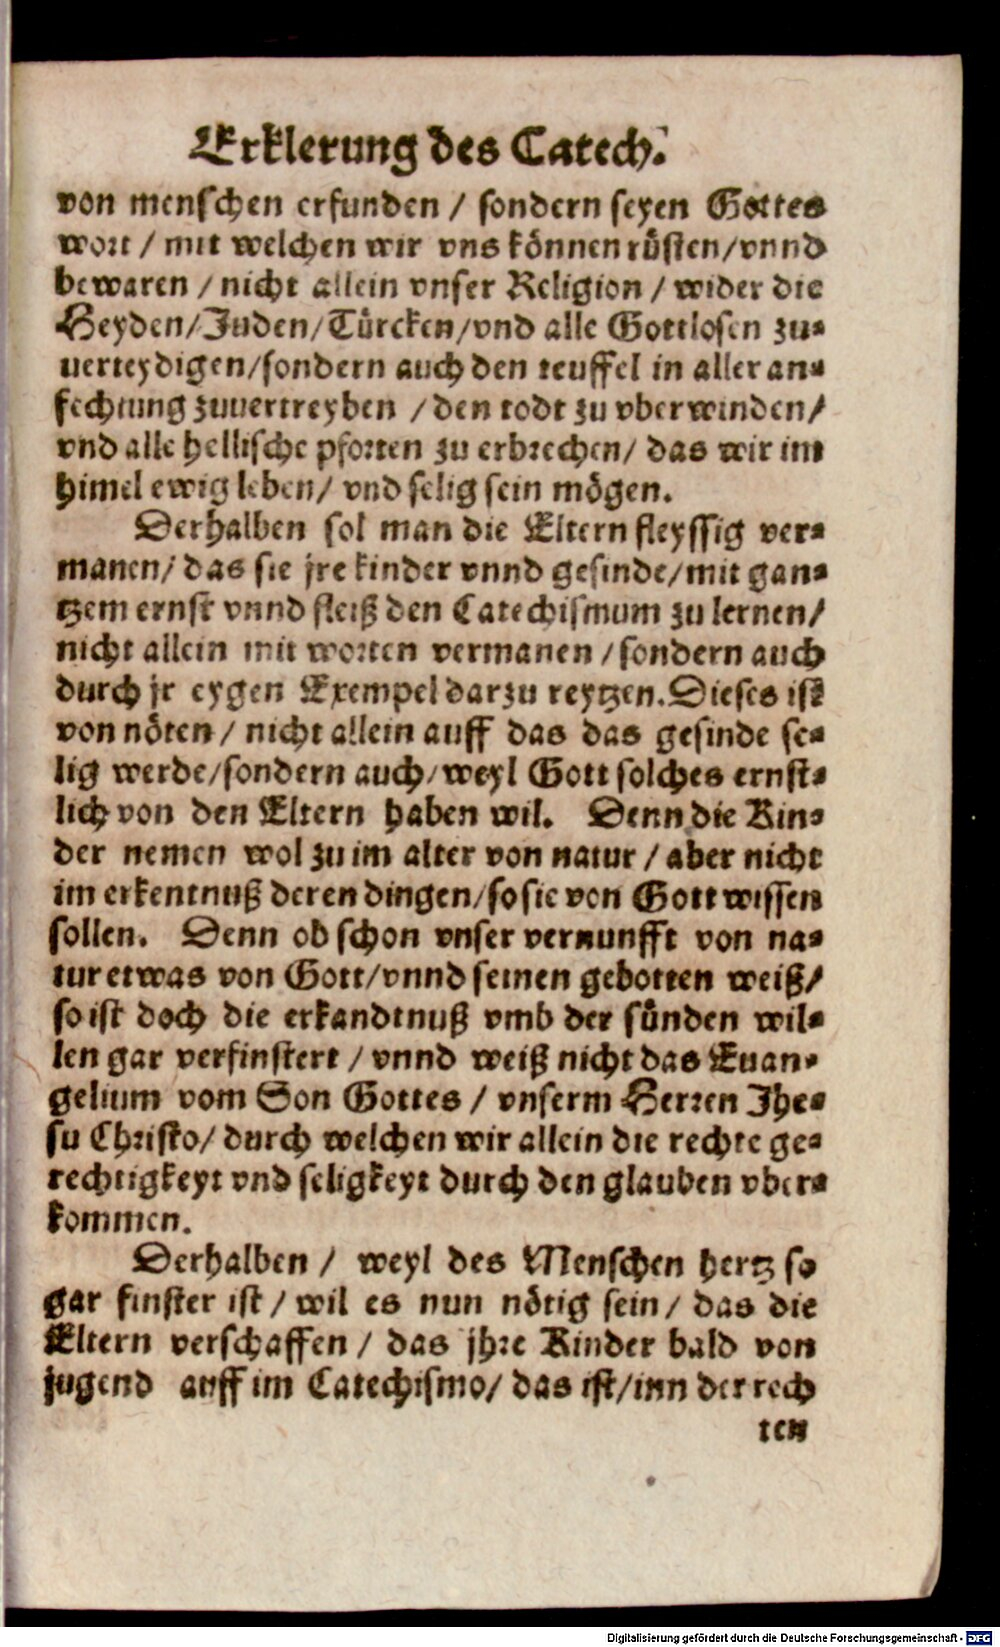 Erklerung des Catech.
von menschen erfunden / sondern seyen Gottes
wort / mit welchen wir vns können rüsten/vnnd
bewaren / nicht allein vnser Religion / wider die
Heyden/Juden/Türcken/vnd alle Gottlosen zu-
uerteydigen/sondern auch den teuffel in aller an-
fechtung zuuertreyben / den todt zu vberwinden/
vnd alle hellische pforten zu erbrechen/ das wir im
himel ewig leben/ vnd selig sein mögen.
Derhalben sol man die Eltern fleyssig ver-
manen/ das sie jre kinder vnnd gesinde/mit gan-
tzem ernst vnnd fleiß den Catechismum zu lernen/
nicht allein mit worten vermanen / sondern auch
durch jr eygen Exempel darzu reytzen. Dieses ist
von nöten / nicht allein auff das das gesinde se-
lig werde/sondern auch/weyl Gott solches ernst-
lich von den Eltern haben wil. Denn die Kin-
der nemen wol zu im alter von natur / aber nicht
im erkentnuß deren dingen/so sie von Gott wissen
sollen. Denn ob schon vnser vernunfft von na-
tur etwas von Gott/vnnd seinen gebotten weiß/
so ist doch die erkandtnuß vmb der sünden wil-
len gar verfinstert / vnnd weiß nicht das Euan-
gelium vom Son Gottes / vnserm Herren Jhe-
su Christo/ durch welchen wir allein die rechte ge-
rechtigkeyt vnd seligkeyt durch den glauben vber-
kommen.
Derhalben / weyl des Menschen hertz so
gar finster ist / wil es nun nötig sein / das die
Eltern verschaffen / das jhre Kinder bald von
jugend auff im Catechismo/ das ist/inn der rech
ten
Digitalisierung gefördert durch die Deutsche Forschungsgemeinschaft - DFG